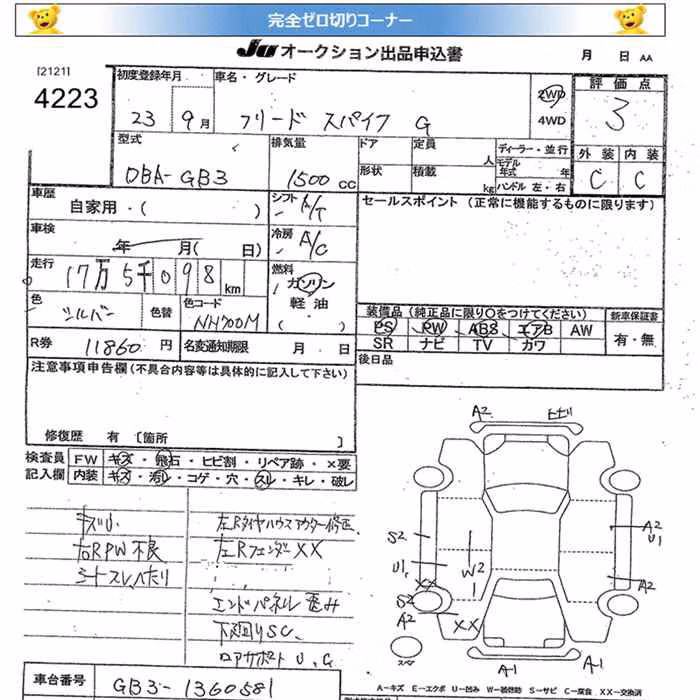 完全ゼロ切りコーナー
JU オークション出品申込書 月 日 AA
[2121]
4223
初度登録年月 車名・グレード 2WD 4WD 評価点
23 9月 フリード スパイク G 3
型式 排気量 ドア 定員 人 ディーラー・並行 外装 内装
DBA-GB3 1500 CC 形状 積載 kg モデル年式 年 ハンドル 左・右 C C
車歴 シフト セールスポイント (正常に機能するものに限ります)
自家用・( )
車検 冷房 A/C
年 月( 日)
走行 燃料
17万5千098 km ガソリン
軽油
( )
色 シルバー 色替 色コード NH700M
装備品 (純正品に限り〇をつけてください) 新車保証書
PS PW ABS エアB AW 有・無
SR ナビ TV カワ
R券 11860 円 名変通知期限 月 日 後日品
注意事項申告欄 (不具合内容等は具体的に記入して下さい)
修復歴 有 [箇所 ]
検査員記入欄 FW キズ・飛石・ヒビ割・リペア跡・×要
内装 キズ・汚れ・コゲ・穴・スレ・キレ・破レ
キズU. 左Rタイヤハウスアウター修正
右RPW不良 左Rフェンダー XX
シートスレ,へたり
エンドパネル歪み
下廻りSC.
ロアサポート U,G
A2
S2
A2
U1
U1
XX
W2
A2
S2
A2
XX
A-1
A-1
車台番号 GB3-1360581
A-キズ E-エクボ U-凹み W-装飾助 S-サビ C-腐食 XX-交換済